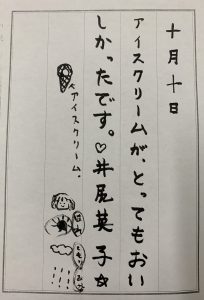 十月十日
アイスクリームが、とってもおい
しかったです。♡井尻英子☆
^アイスクリーム.
はれ
くもり